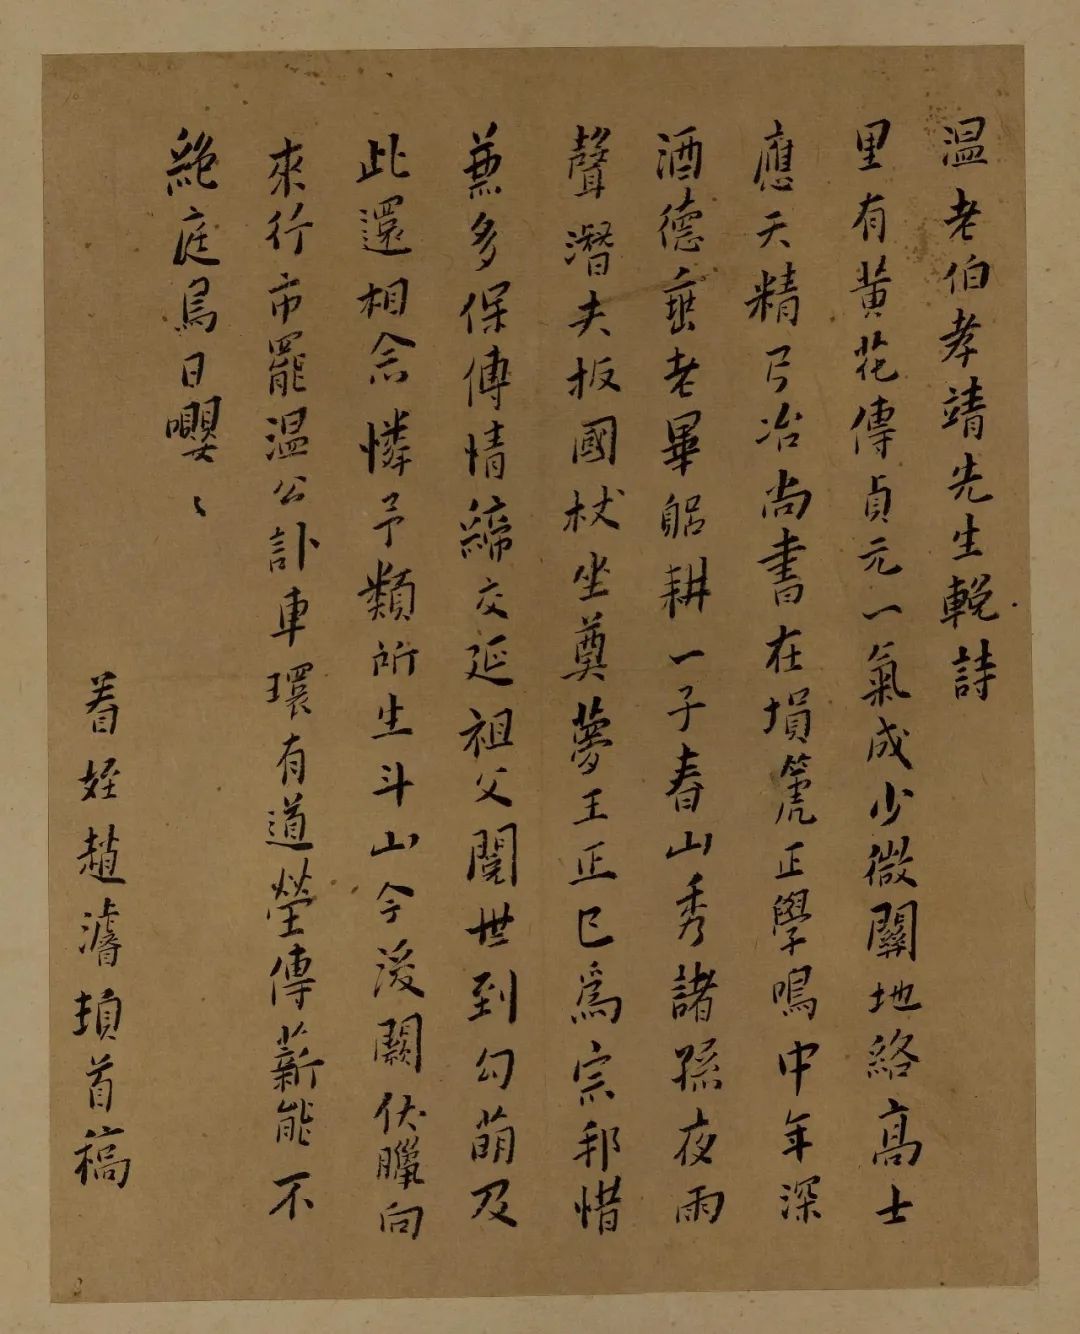 温老伯孝靖先生輓詩
里有黃花傳貞元一氣成少微關地絡高士
應天精弓冶尚書在塤箎正學鳴中年深
酒德垂老畢躬耕一子春山秀諸孫夜雨
聲潛夫扳國杖坐奠夢王正已為宗邦惜
兼多保傅情締交延祖父閱世到勾萌及
此還相念憐予類所生斗山今後闕伏臘向
來行市罷溫公訃車環有道塋傳薪能不
絕庭鳥日嚶〻
眷姪趙濬頓首稿